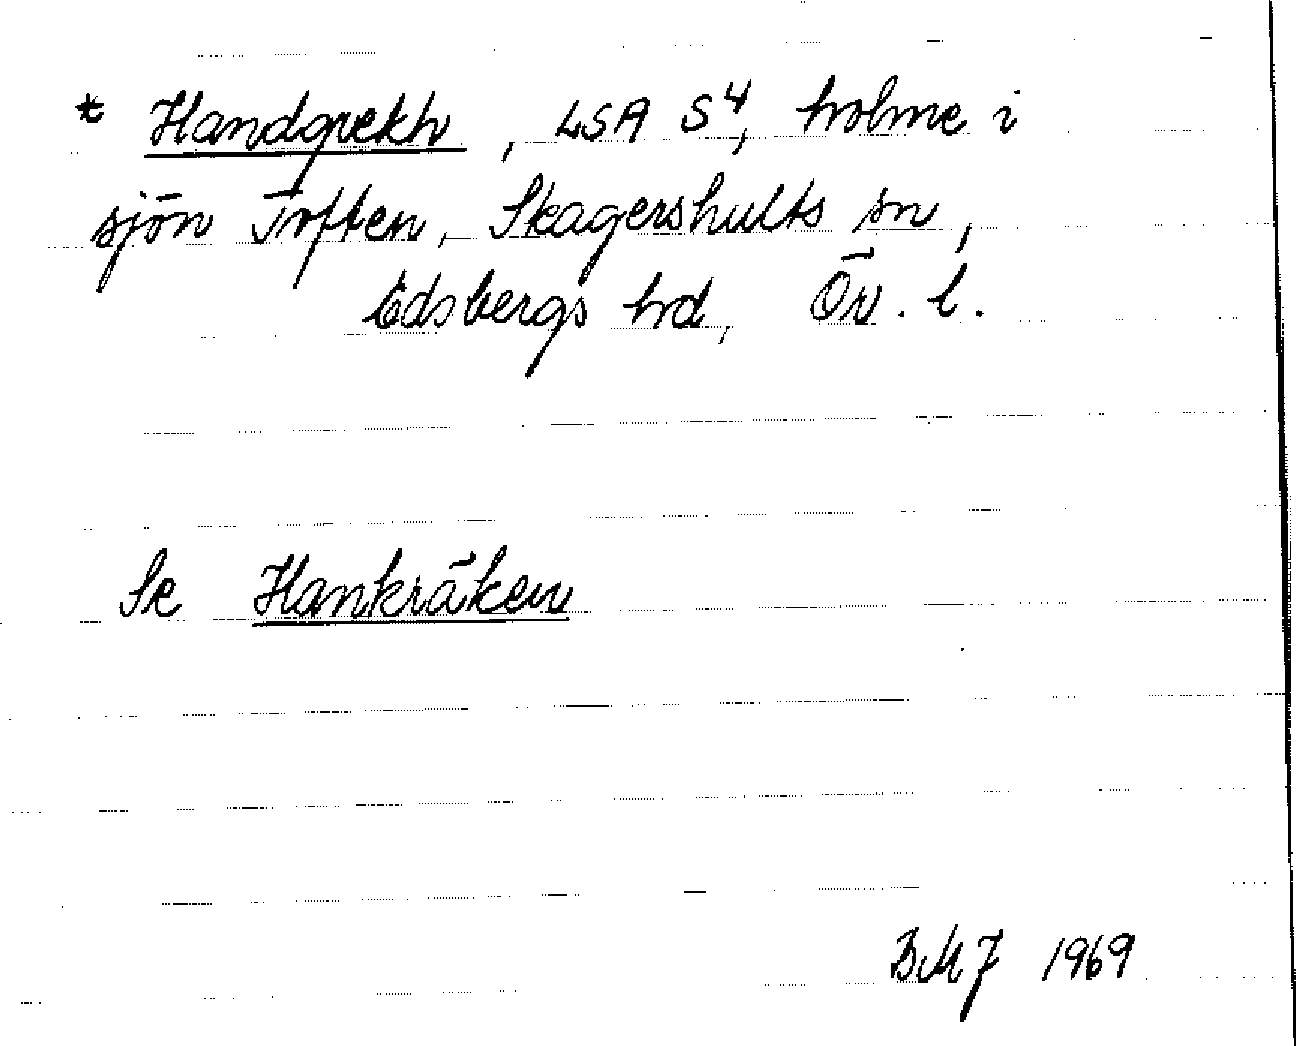 * Handgrekh, LSA S4, holme i
sjön Toften, Skagershults sn,
Edsbergs hd, Ör. l.
Se Hankräken
BMJ 1969